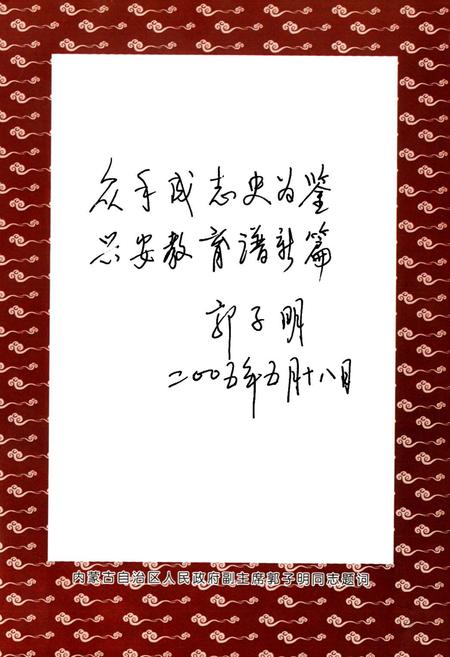 众手成志史为鉴
兴安教育谱新篇
郭子明
二00五年五月十八日
内蒙古自治区人民政府副主席郭子明同志题词